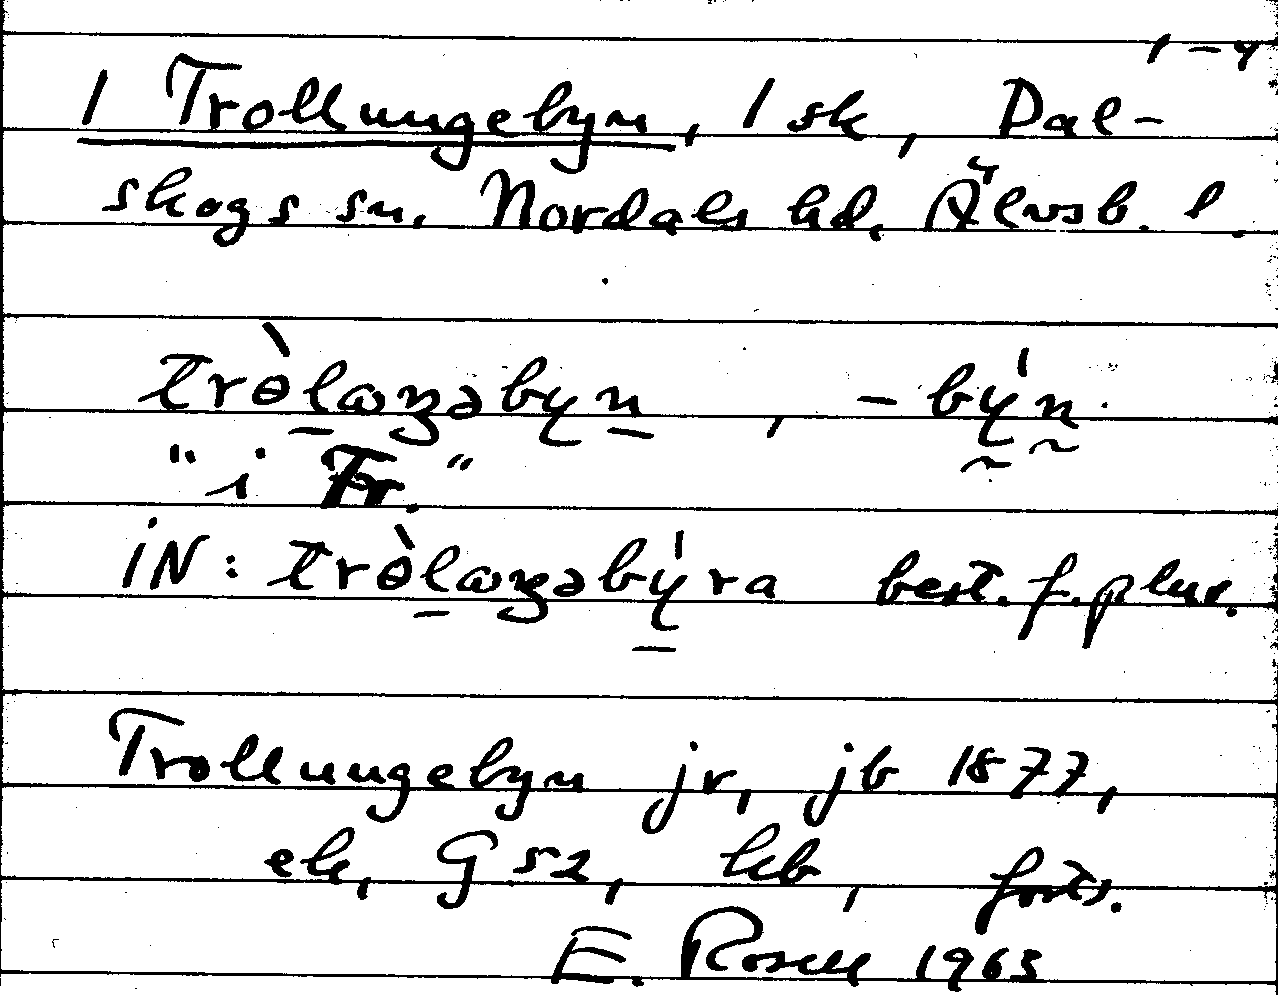 1-4
1 Trollungebyn, 1 sk, Dal-
skogs sn, Nordals hd, Älvsb. l.
trə̀lɷŋəbyn, -býn.
"i Tr."
iN: trə̀lɷŋəbýra best. f. plur.
Trollungebyn jr, jb 1877,
ek, G52, hkb, forts.
E. Rosell 1963